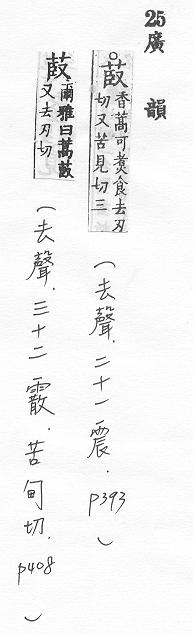 25廣韻
菣香蒿可煮食去刃切又苦見切三(去聲.二十一震.p393)
菣爾雅曰蒿菣又去刃切(去聲.三十二霰.苦甸切.p408)